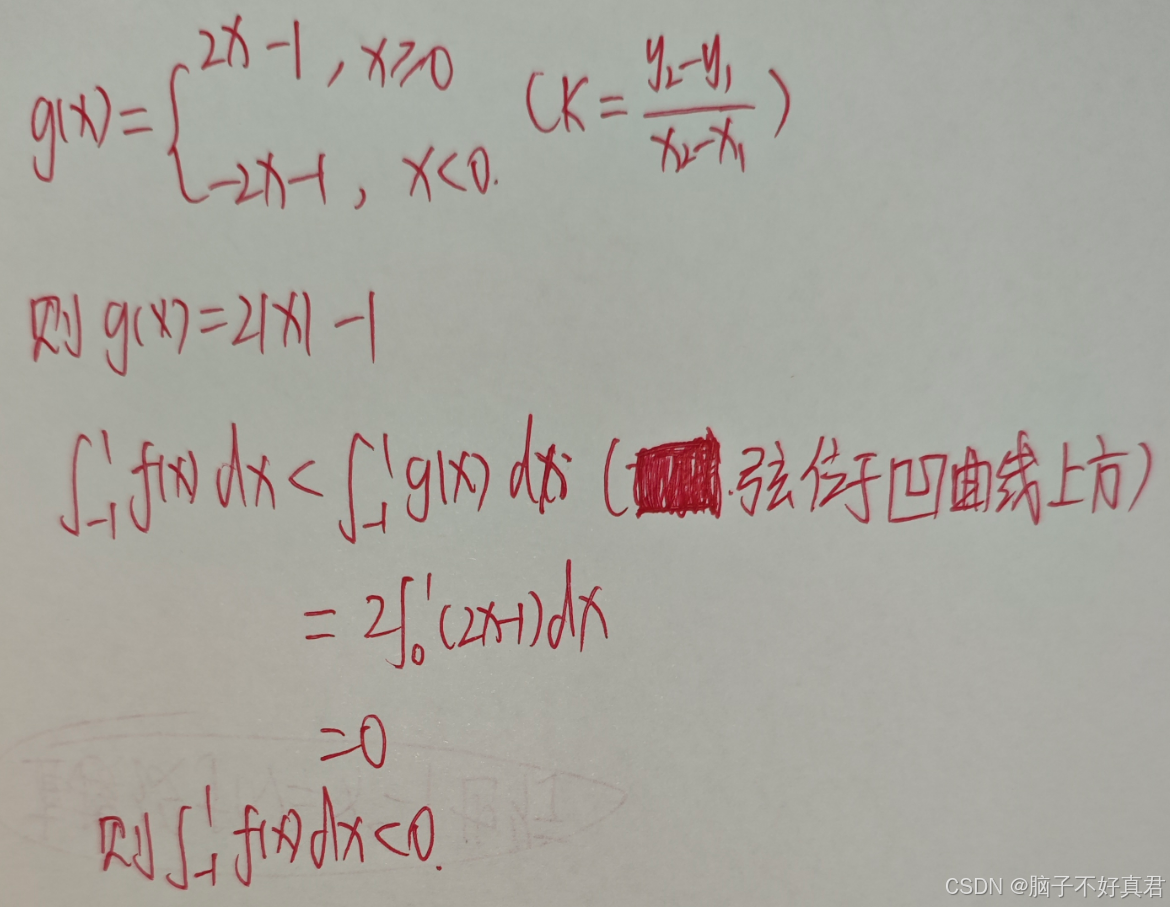 g(x)={2x-1, x≥0 (K=\frac{y_2-y_1}{x_2-x_1})
-2x-1, x<0.
则 g(x)=2|x|-1
∫_{-1}^{1} f(x) dx < ∫_{-1}^{1} g(x) dx. (弦位于凹曲线上方)
= 2∫_0^1 (2x-1) dx
=0
则 ∫_{-1}^{1} f(x) dx<0.
CSDN @脑子不好真君